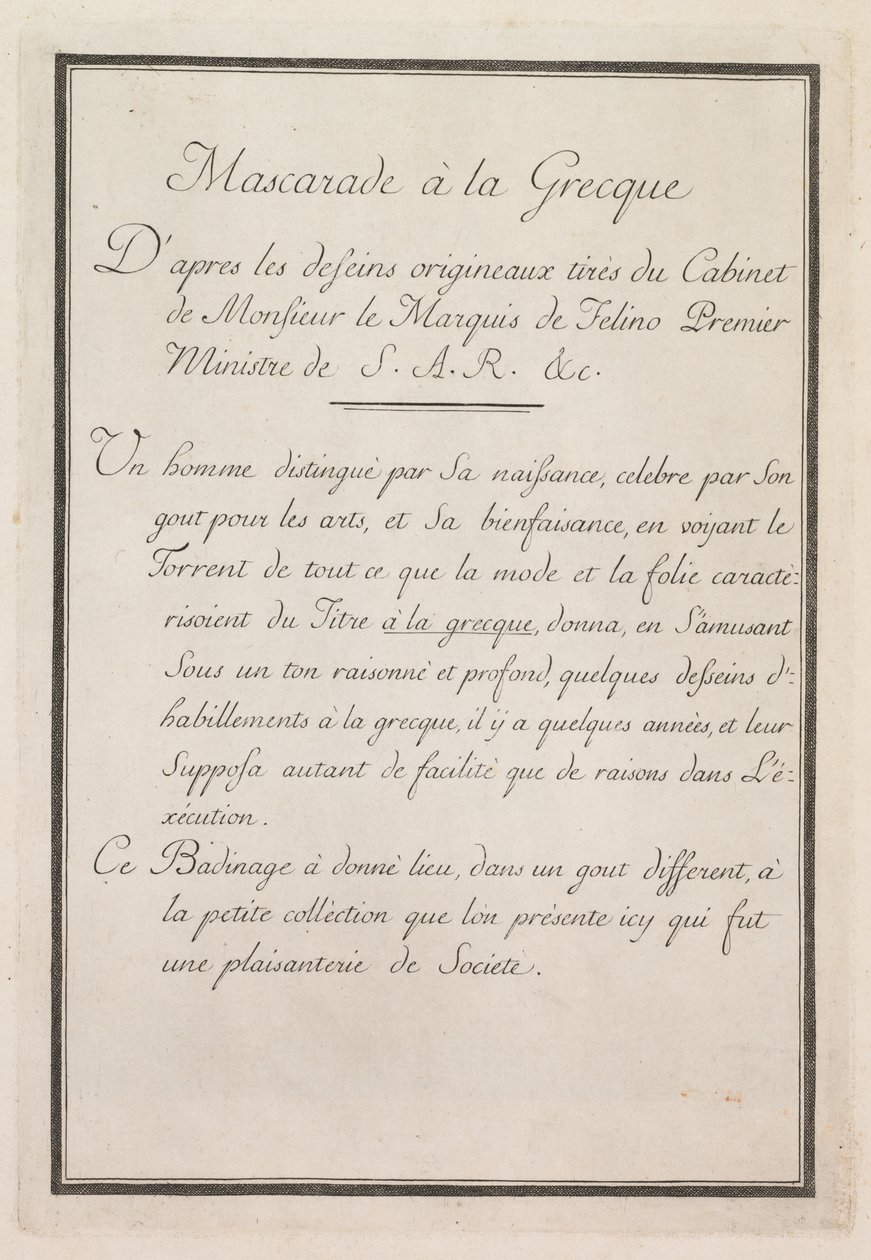 Mascarade à la Grecque
D'apres les deſeins origineaux tirès du Cabinet
de Monſieur le Marquis de Felino Premier
Ministre de S. A. R. &c.
Un homme distinguè par Sa naiſsance, celebre par Son
gout pour les arts, et Sa bienfaisance, en voÿant le
Torrent de tout ce que la mode et la folie caractè=
risoient du Titre à la grecque, donna, en S'amusant
Sous un ton raisonnè et profond, quelques deſseins d'=
habillements à la grecque, il ÿ a quelques annèes, et leur
Suppoſa autant de facilitè que de raisons dans L'é=
xécution.
Ce Badinage à donnè lieu, dans un gout different, à
la petite collèction que lòn présente icy qui fut
une plaisanterie de Societè.